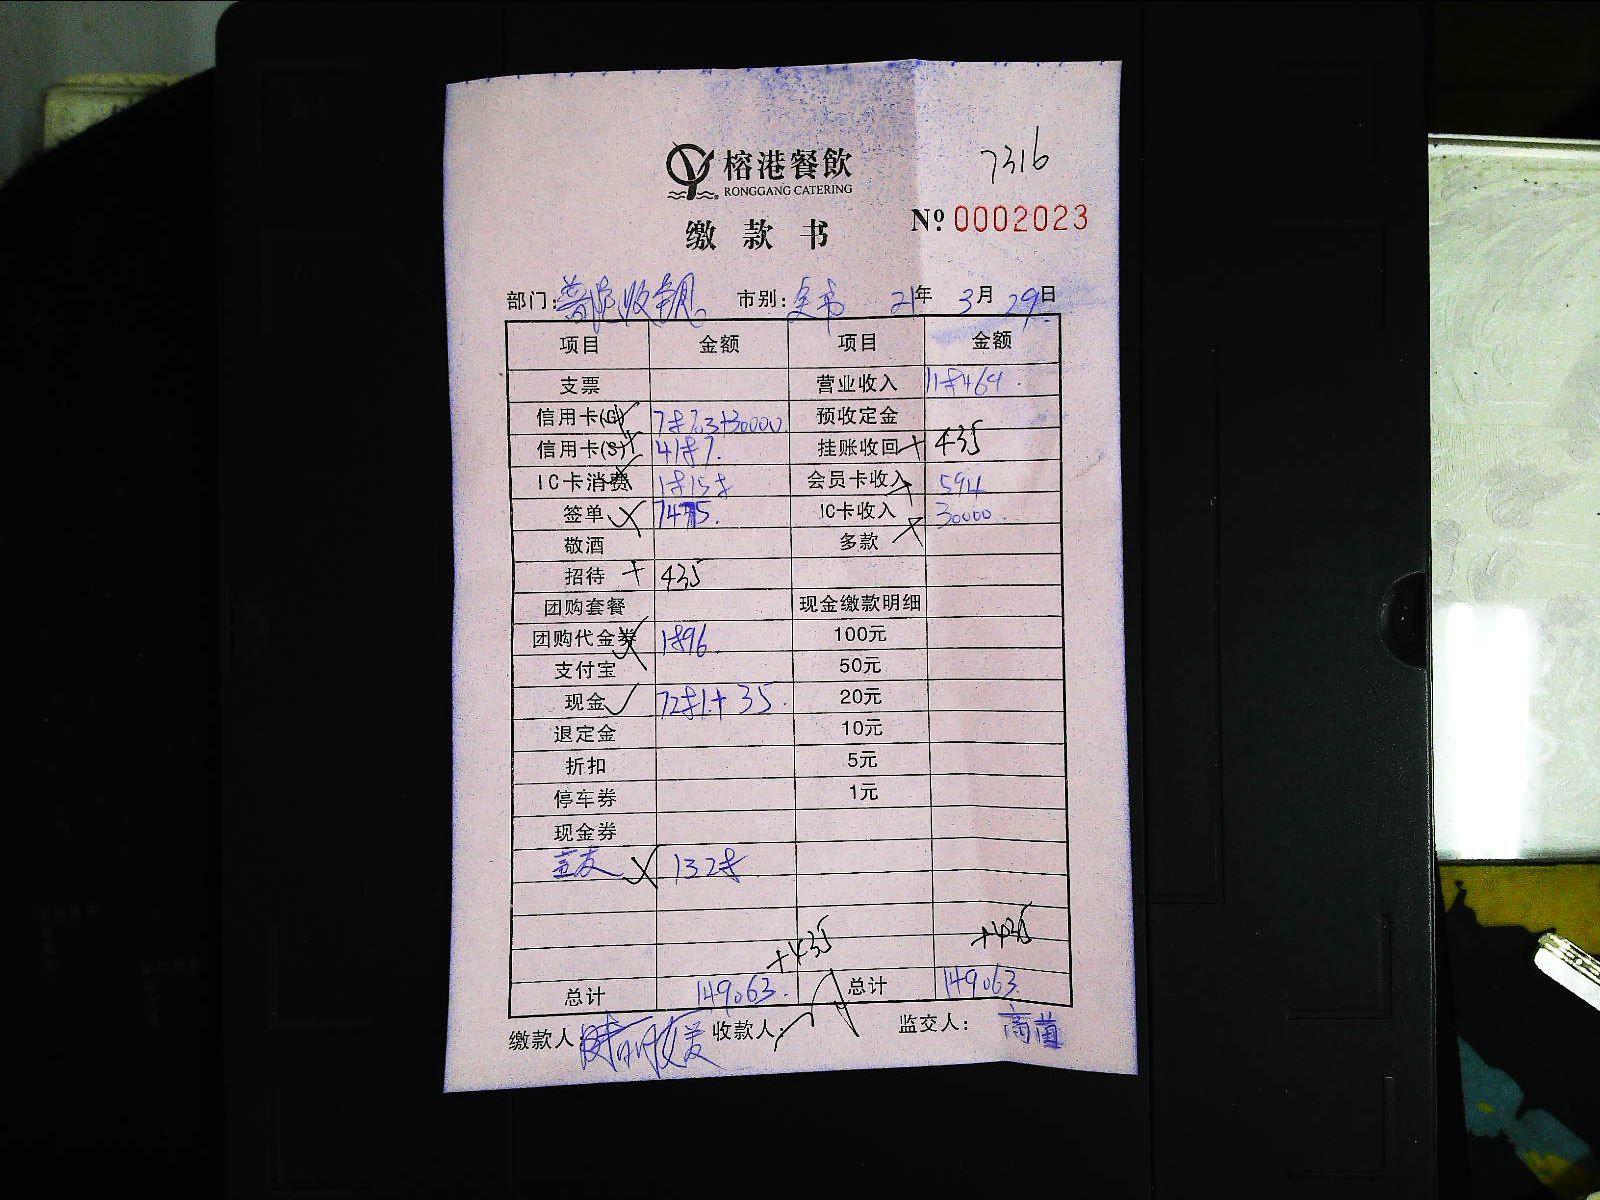 榕港餐飲
RONGGANG CATERING
7316
缴款书
No. 0002023
部门: 市别: 21年 3月 29日
项目 金额 项目 金额
支票 营业收入 118469.
信用卡(G) 7873+30000. 预收定金
信用卡(S) 4187. 挂账收回 + 435
IC卡消费 18158 会员卡收入 594
签单 7475. IC卡收入 30000.
敬酒 多款
招待 + 435
团购套餐 现金缴款明细
团购代金券 1896. 100元
支付宝 50元
现金 7281.+35. 20元
退定金 10元
折扣 5元
停车券 1元
现金券
1328
+435 +435
总计 149063. 总计 149063.
缴款人: 收款人: 监交人: